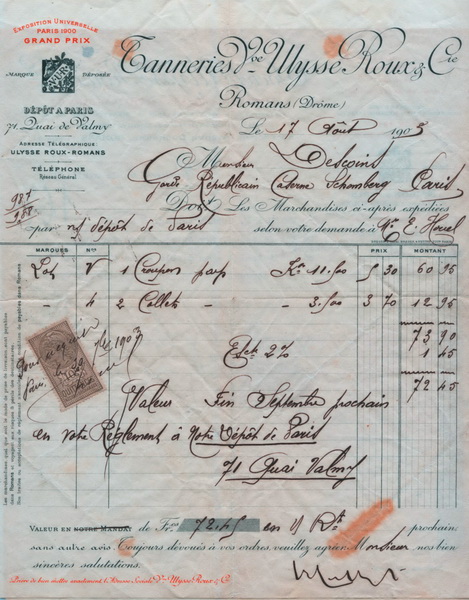 EXPOSITION UNIVERSELLE
PARIS 1900
GRAND PRIX
MARQUE DÉPOSÉE
DÉPÔT A PARIS
71, Quai de Valmy
ADRESSE TÉLÉGRAPHIQUE
ULYSSE ROUX-ROMANS
TÉLÉPHONE
Réseau Général
Tanneries Vve Ulysse Roux & Cie
Romans (Drôme)
Le 17 Août 1903
Monsieur Descoins
Garde Républicain Caserne Schomberg Paris
Doit Les Marchandises ci-après expédiées
par n/ dépôt de Paris selon votre demande à Mr. E.
MARQUES Nos PRIX MONTANT
Lot V 1 Croupon pap Ko 11.500 5 30 60 95
- 4 2 Collets - - 3.500 3 70 12 95
73 90
Esc. 2% 1 45
72 45
Valeur Fin Septembre prochain
en votre Règlement à Notre Dépôt de Paris
71 Quai Valmy
VALEUR EN NOTRE MANDAT de Frcs 72.45 en prochain
sans autre avis. Toujours dévoués à vos ordres, veuillez agréer Monsieur nos bien
sincères salutations.
Prière de bien mettre exactement l'Adresse Sociale Vve Ulysse Roux & Cie